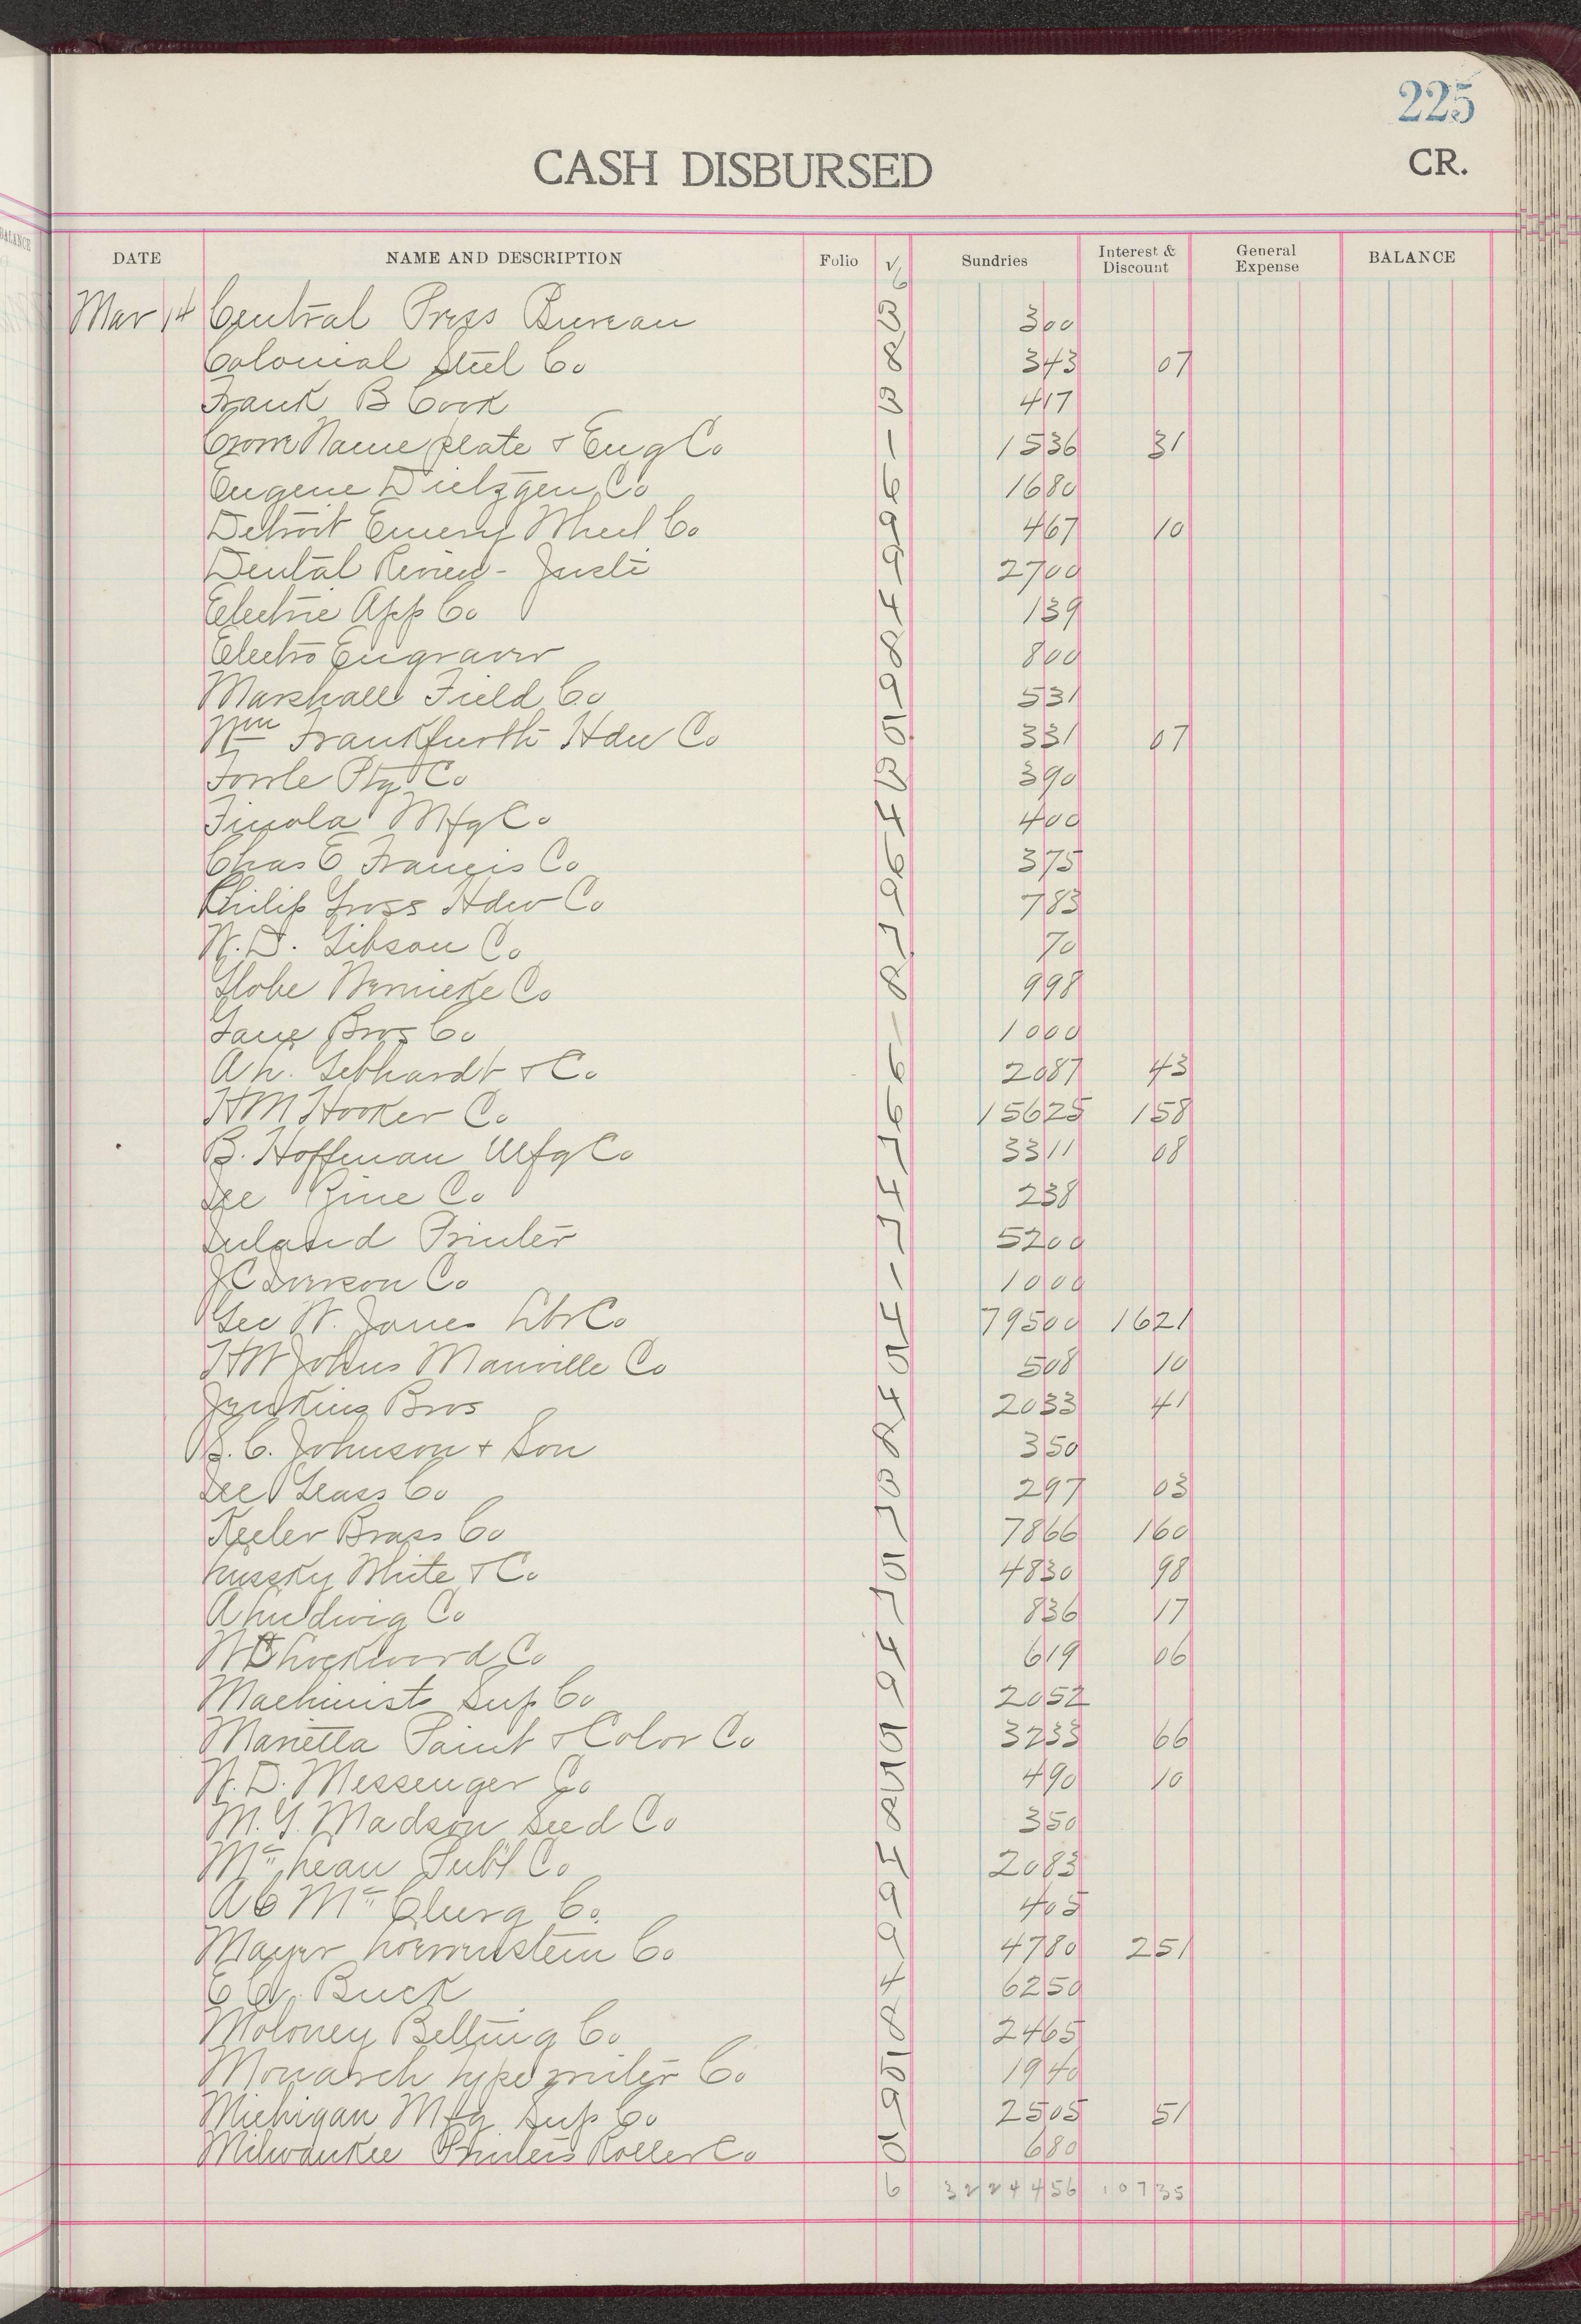 225
CASH DISBURSED CR.
BALANCE
DATE NAME AND DESCRIPTION Folio √ Sundries Interest & Discount General Expense BALANCE
6
Mar 14 Central Press Bureau 3 300
Colonial Steel Co 8 343 07
Frank B Cook 3 417
Crown Name plate & Eng Co 1 1536 31
Eugene Dietzgen Co 6 1680
Detroit Emery Wheel Co 9 467 10
Dental Review - Justi 9 2700
Electric App Co 4 139
Electro Engraver 8 800
Marshall Field Co 9 531
Wm Frankfurth Hdw Co 5 331 07
Fowle Ptg Co 3 390
Finola Mfg Co 4 400
Chas E Francis Co 6 375
Philip Gross Hdw Co 9 783
W.D. Gibson Co 7 70
Globe Wernicke Co 8 998
Gane Bros Co 1 1000
A L. Gebhardt & Co 6 2087 43
H M Hooker Co 6 15625 158
B. Hoffman Mfg Co 7 3311 08
4 238
Inland Printer 7 5200
J C Iverson Co 1 1000
Geo W. Jones Lbr Co 4 79500 1621
H W Johns Manville Co 5 508 10
Jenkins Bros 4 2033 41
S. C. Johnson & Son 8 350
Co 3 297 03
Keeler Brass Co 7 7866 160
Lussky White & Co 5 4830 98
A Ludwig Co 7 836 17
W Lockwood Co 4 619 06
Machinists Sup Co 9 2052
Marietta Paint & Color Co 5 3233 66
W. D. Messenger Co 5 490 10
M. G. Madson Seed Co 8 350
McLean Publ Co 4 2083
A C McClurg Co. 9 405
Mayer Loewenstein Co 9 4780 251
E A. Buck 4 6250
Moloney Belting Co 8 2465
Monarch typewriter Co 5 1940
Michigan Mfg Sup Co 9 2505 51
Milwaukee Printers Roller Co 5 680
6 3224456 10735